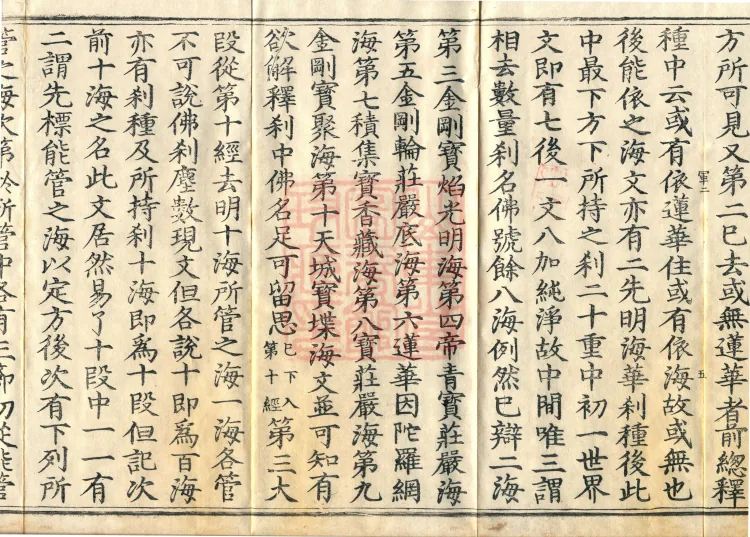 方所可見又第二巳去或無蓮華者前總釋
種中云或有依蓮華住或有依海故或無也
軍二
五
後能依之海文亦有二先明海華刹種後此
中最下方下所持之刹二十重中初一世界
文即有七後一文八加純淨故中間唯三謂
相去數量刹名佛號餘八海例然巳辯二海
第三金剛寶焰光明海第四帝青寶莊嚴海
第五金剛輪莊嚴底海第六蓮華因陀羅網
海第七積集寶香藏海第八寶莊嚴海第九
金剛寶聚海第十天城寶堞海文並可知有
欲解釋刹中佛名足可留思巳下入第十經第三大
段從第十經去明十海所管之海一海各管
不可說佛刹塵數現文但各說十即爲百海
亦有刹種及所持刹十海即爲十段但記次
前十海之名此文居然易了十段中一一有
二謂先標能管之海以定方後次有下列所
管之海次第於所管中各有三節初從能管